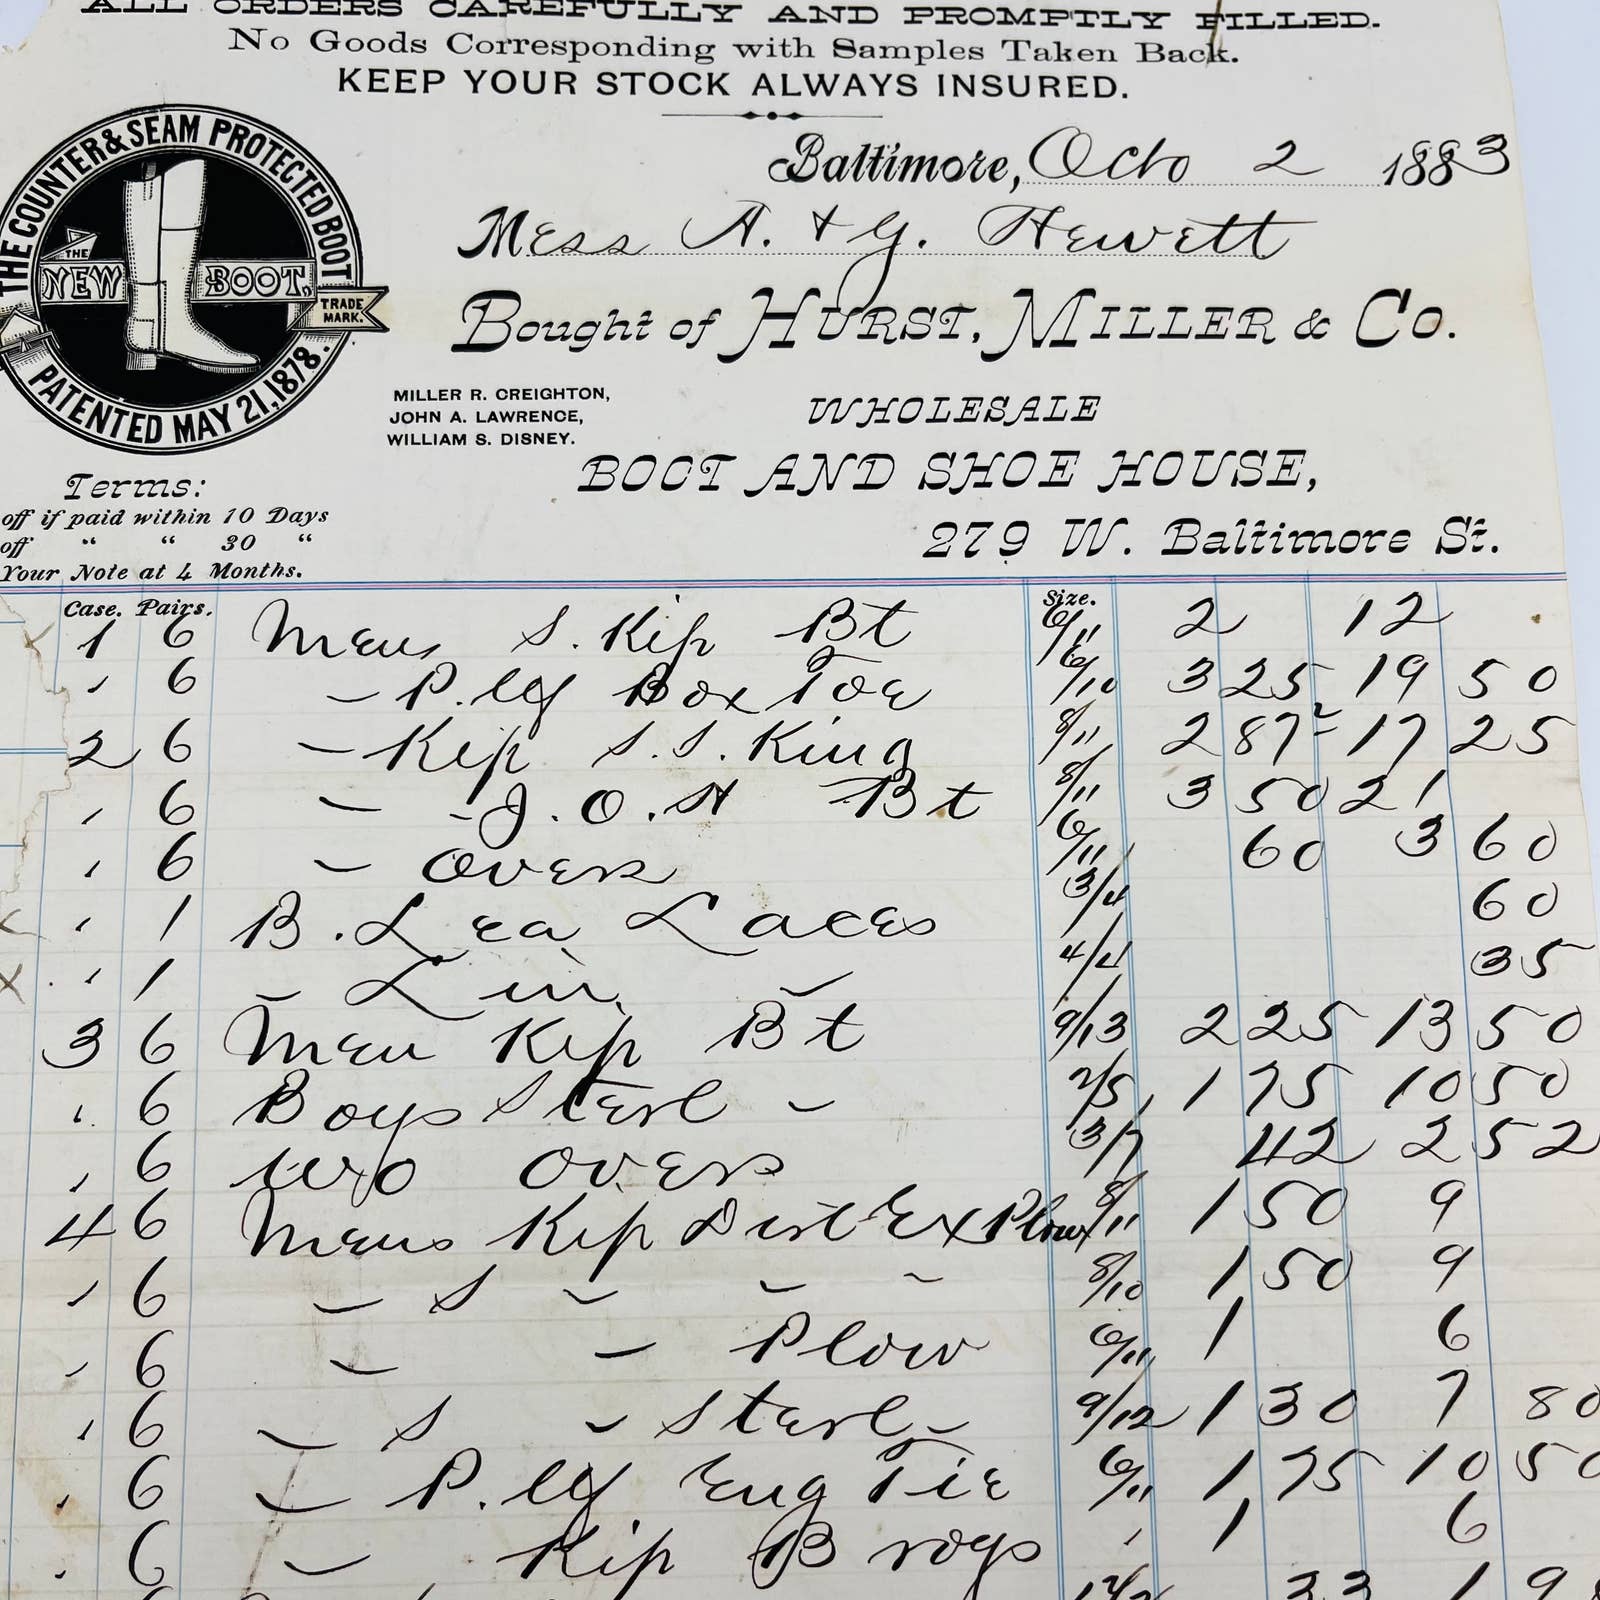 ALL ORDERS CAREFULLY AND PROMPTLY FILLED.
No Goods Corresponding with Samples Taken Back.
KEEP YOUR STOCK ALWAYS INSURED.
THE COUNTER & SEAM PROTECTED BOOT
THE
NEW BOOT.
TRADE
MARK.
PATENTED MAY 21, 1878.
Baltimore, Octo 2 1883
Mess A. & G. Hewett
Bought of HURST, MILLER & CO.
MILLER R. CREIGHTON,
JOHN A. LAWRENCE,
WILLIAM S. DISNEY.
WHOLESALE
BOOT AND SHOE HOUSE,
279 W. Baltimore St.
Terms:
off if paid within 10 Days
off " " 30 "
Your Note at 4 Months.
Case. Pairs. Size.
1 6 Mens S. Kip Bt 6/11 2 12
" 6 " P. Cf Box Toe 6/10 3 25 19 50
2 6 " Kip S.S. King 8/11 2 87 2 17 25
" 6 " " J.O.H Bt 8/11 3 50 21
" 6 " Overs 6/11 60 3 60
" 1 B. Lea Laces 3/4 60
" 1 " Lin " 4/4 35
3 6 Men Kip Bt 9/13 2 25 13 50
" 6 Boys Sterl " 2/5 1 75 10 50
" 6 Wo Overs 3/7 42 2 52
4 6 Mens Kip Dirt Ex Plow 8/11 1 50 9
" 6 " S " " " 8/10 1 50 9
" 6 " " Plow 6/11 1 6
" 6 " S " Sterl " 9/12 1 30 7 80
" 6 " P. Cf Eng Tie 6/11 1 75 10 50
" 6 " Kip Brogs " 1 6
33 1 9